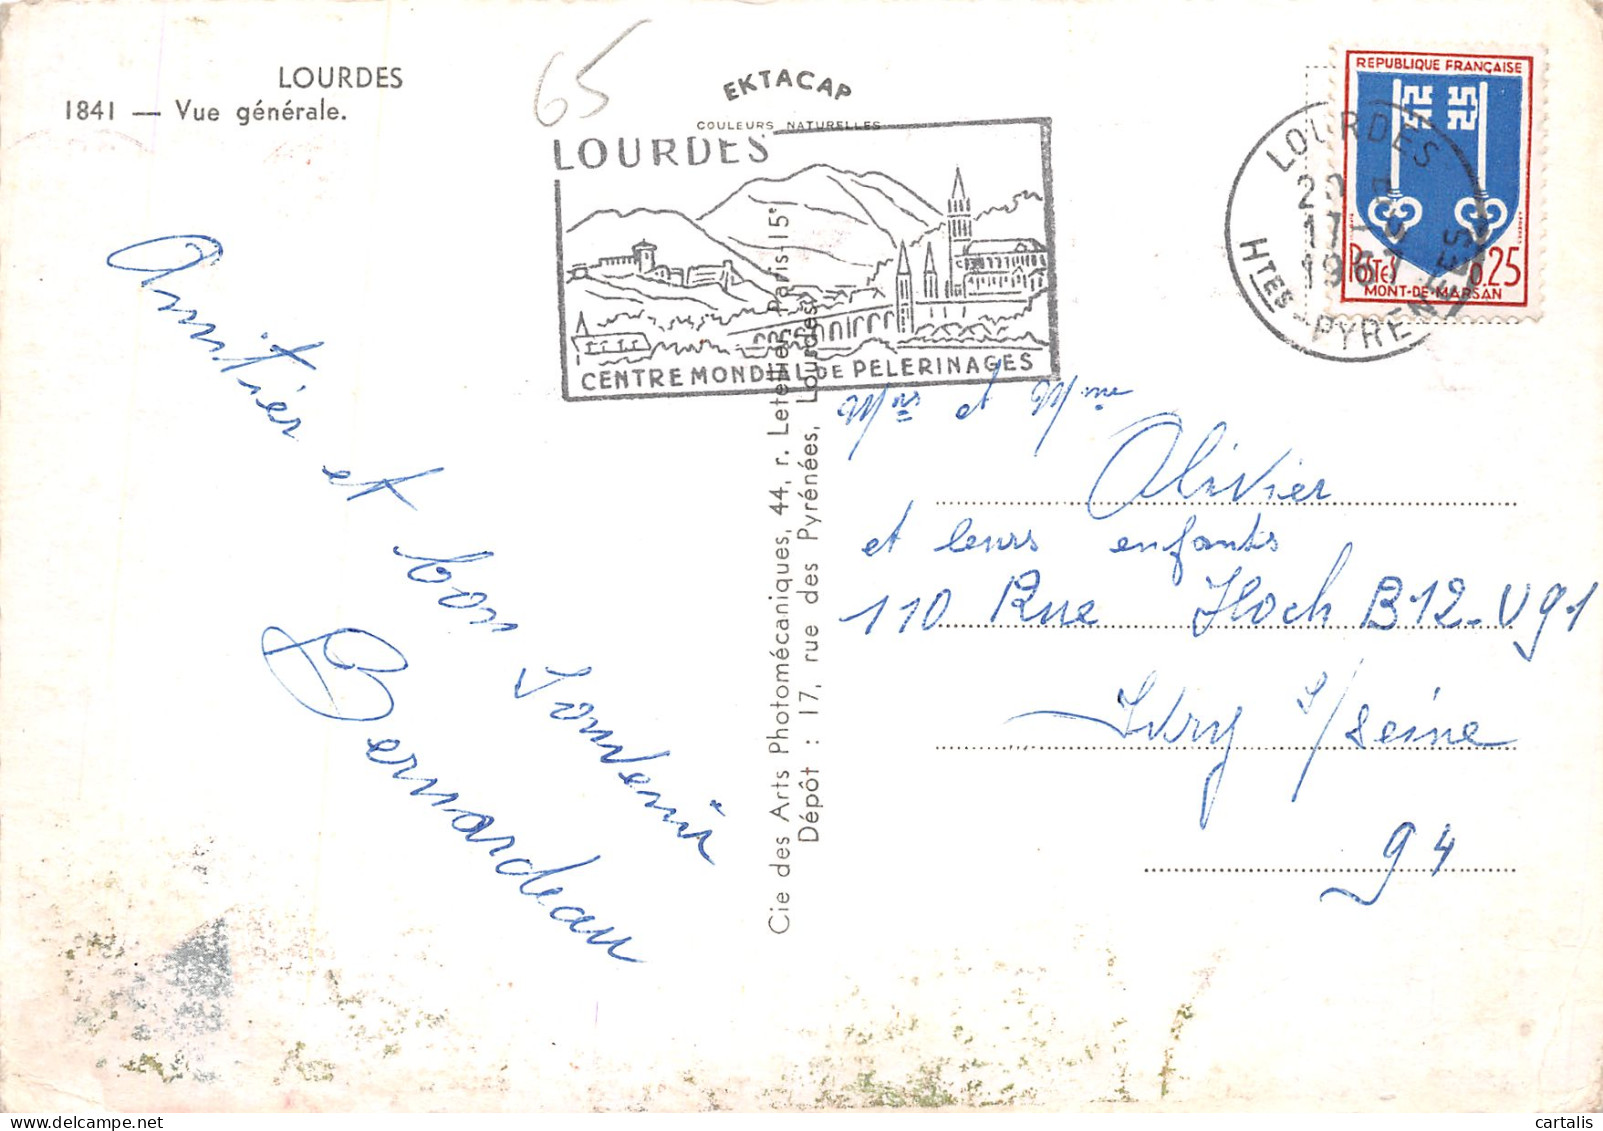 LOURDES
1841 — Vue générale.
65
EKTACAP
COULEURS NATURELLES
LOURDES
CENTRE MONDIAL DE PELERINAGES
REPUBLIQUE FRANÇAISE
POSTES 0,25
MONT-DE-MARSAN
LOURDES
1967
HTES-PYRENEES
Amitiés et bon souvenir
Bernardeau
Cie des Arts Photomécaniques, 44, r. Letellier, Paris-15e
Dépôt : 17, rue des Pyrénées, Lourdes
Mrs et Mme
Olivier
et leurs enfants
110 Rue Hoch B12-V91
Ivry s/seine
94
cartalis